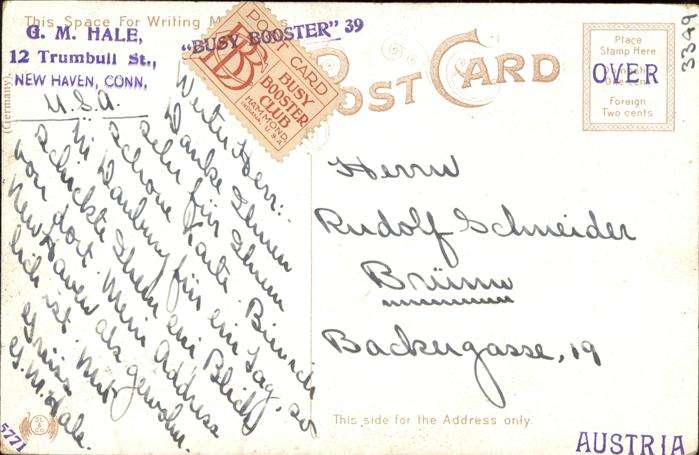 This Space For Writing M
G. M. HALE,
12 Trumbull St.,
NEW HAVEN, CONN,
U.S.A.
(Germany).
"BUSY BOOSTER" 39
POST CARD
BB
BUSY
BOOSTER
CLUB
HAMMOND
INDIANA, U.S.A.
POST CARD
Place
Stamp Here
OVER
Foreign
Two cents
3349
Werter Herr:-
Danke Ihnen
sehr für Ihnen
schone Karte. Bin
in Danbury für ein Tag, so
schickte Ihnen ein
von dort. Mein Address
New Haven als
lich ist. Mit
Gruss
G.M. Hale.
Herrn
Rudolf Schneider
Brünn
Backergasse, 19
This side for the Address only.
5771
AUSTRIA